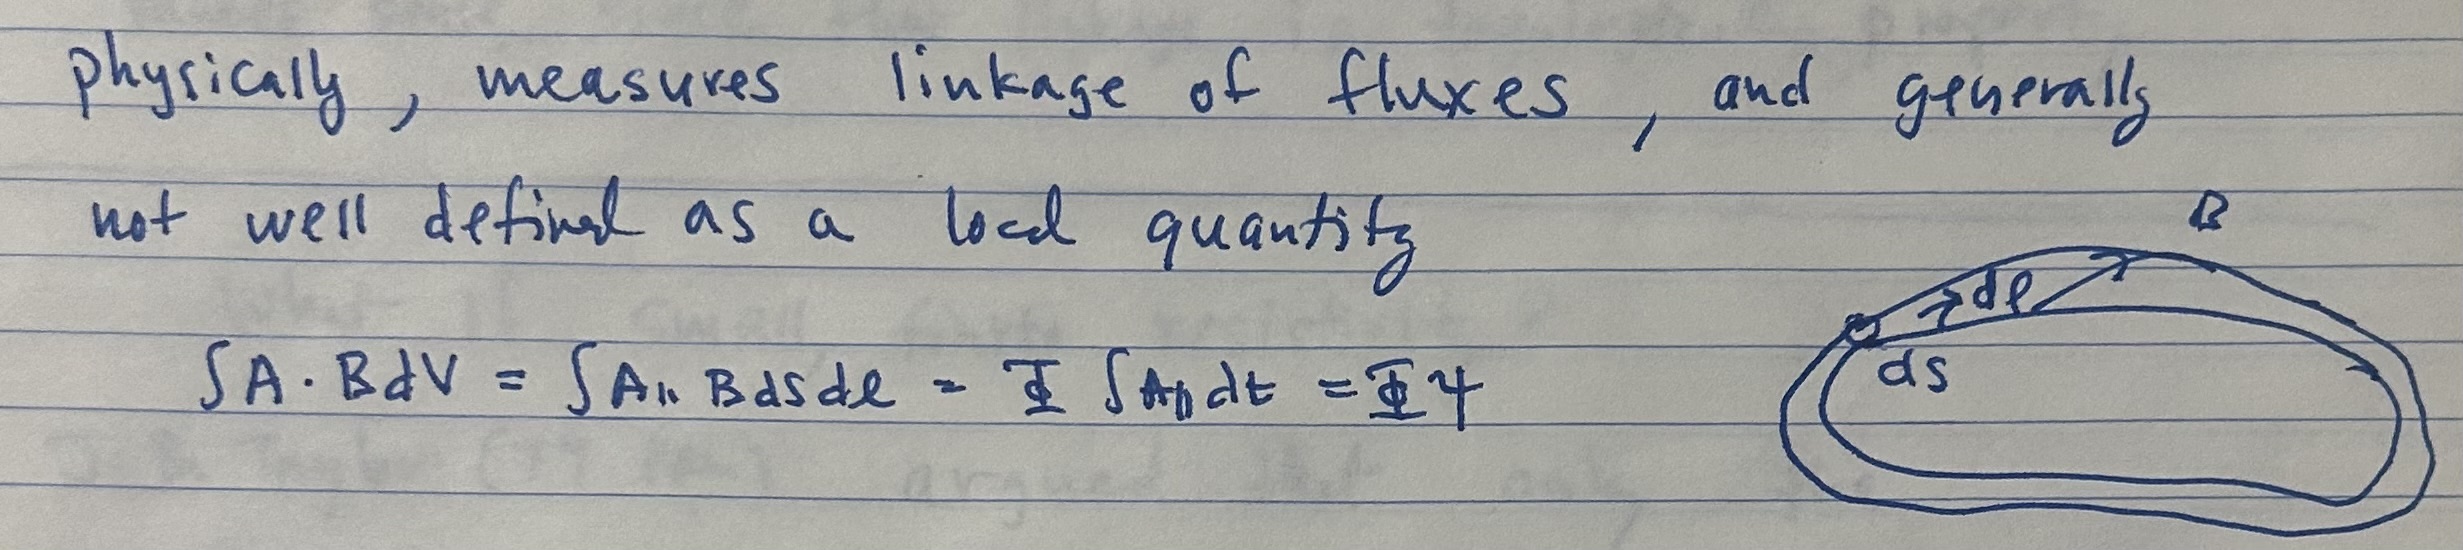 physically, measures linkage of fluxes, and generally
not well defined as a local quantity
B
dℓ
∫A · B dV = ∫A₁₁ B ds dℓ = Φ ∫A₁₁ dℓ = Φ ψ
ds